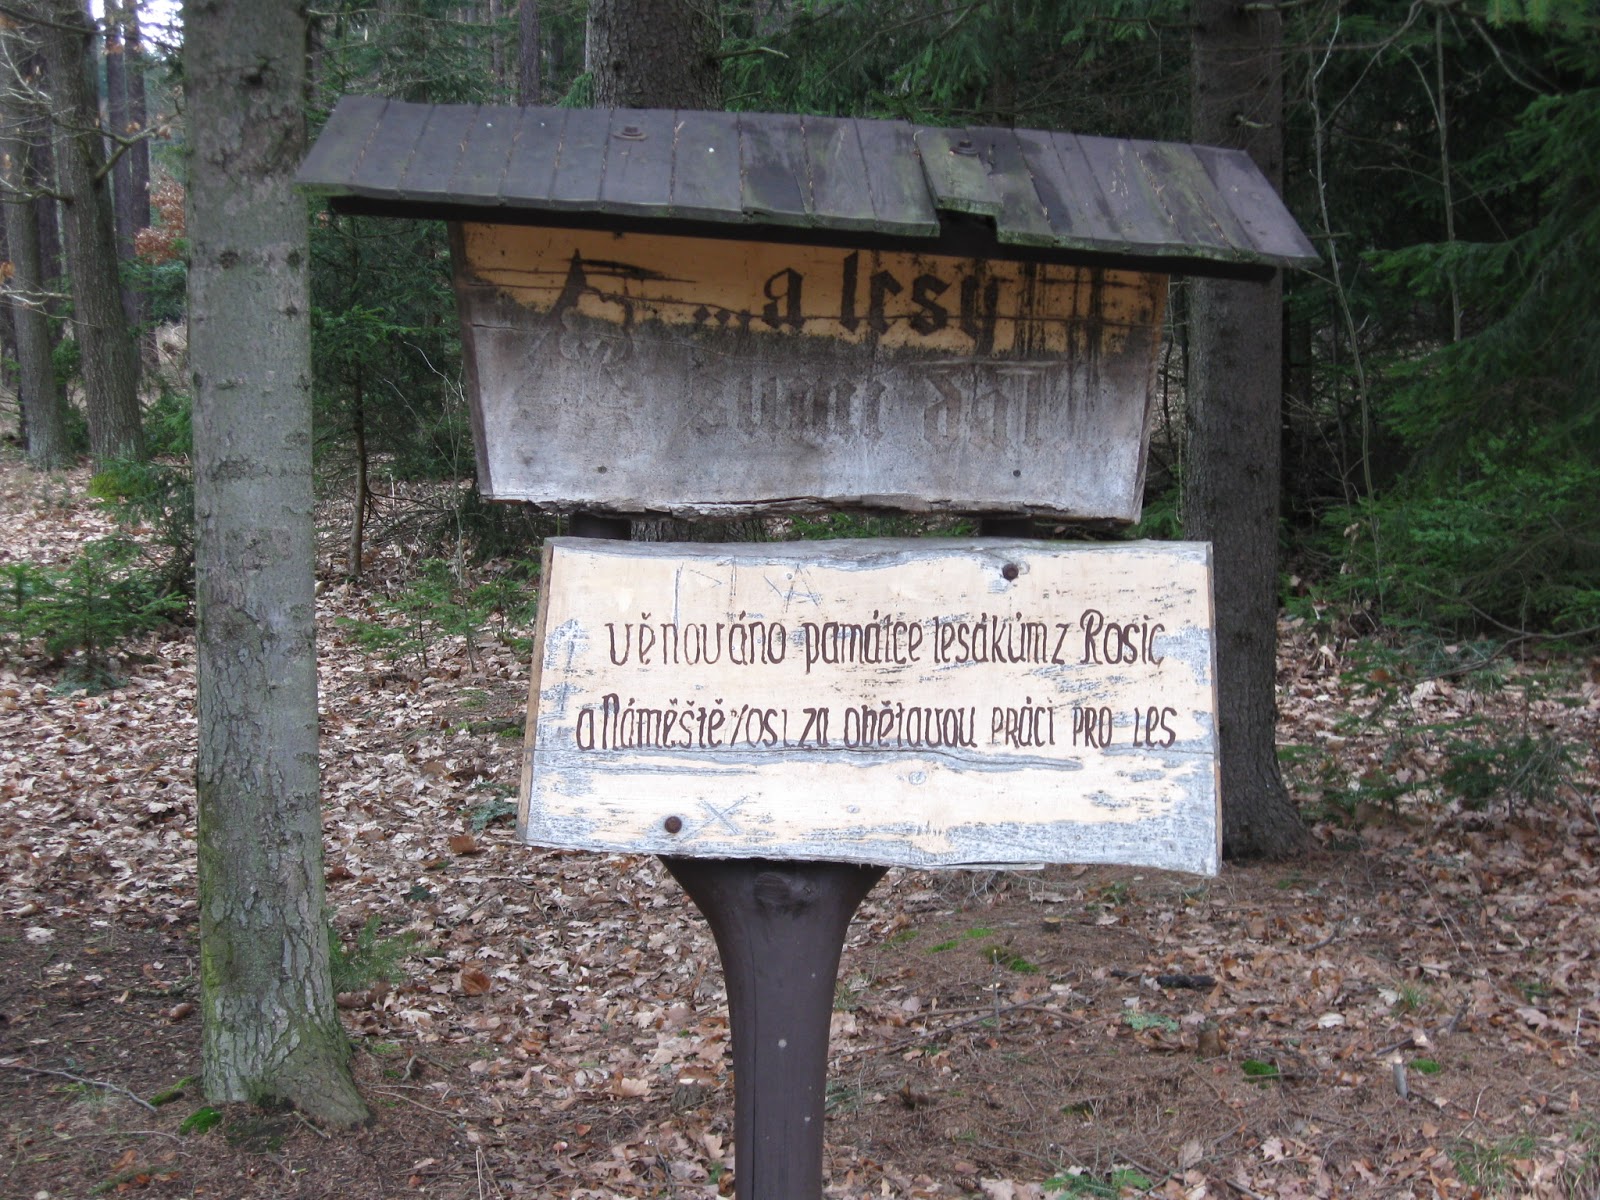 ...a lesy
šumí dál
PIA
věnováno památce lesákům z Rosic
a Náměště/osl za obětavou PRÁCI PRO LES
X